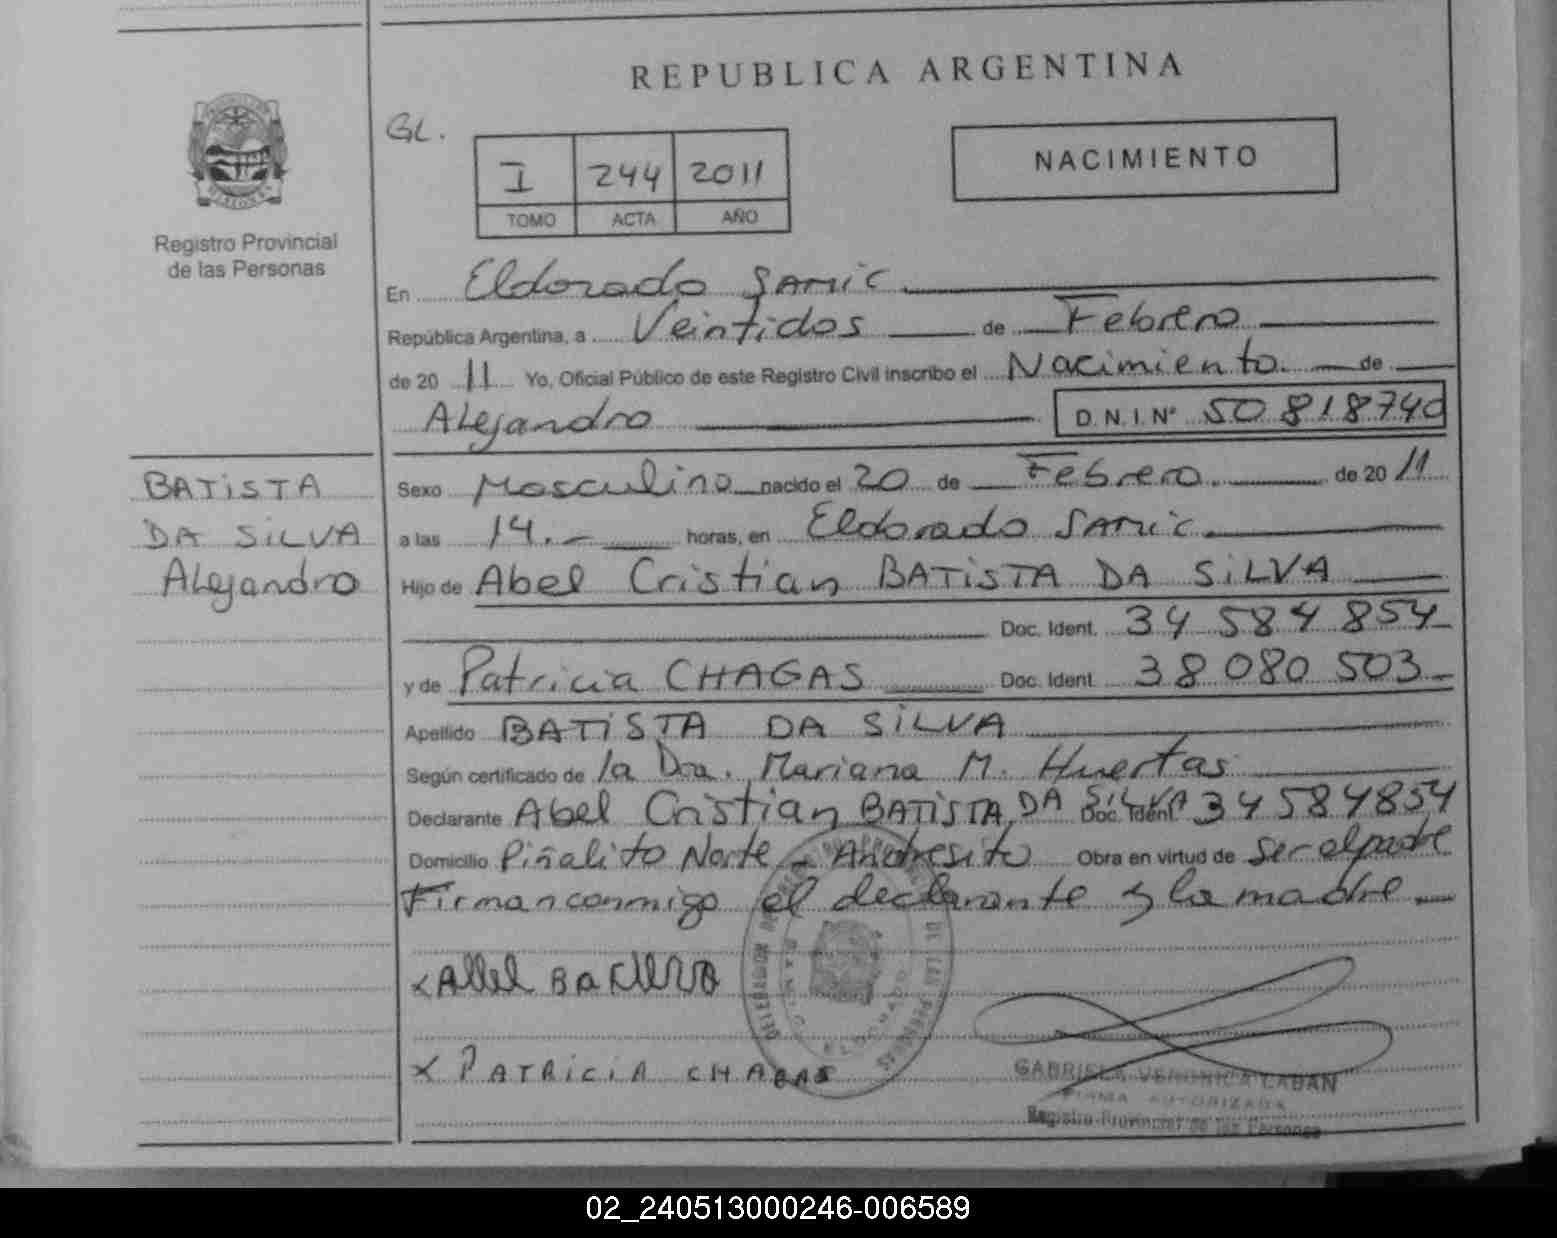 REPUBLICA ARGENTINA
GL.
I 244 2011
TOMO ACTA AÑO
NACIMIENTO
Registro Provincial
de las Personas
En Eldorado SAMIC
República Argentina, a Veintidos de Febrero
de 20 11 Yo, Oficial Público de este Registro Civil inscribo el Nacimiento de
Alejandro D.N.I. Nº 50 818740
BATISTA
DA SILVA
Alejandro
Sexo Masculino nacido el 20 de Febrero de 20 11
a las 14.- horas, en Eldorado SAMIC
Hijo de Abel Cristian BATISTA DA SILVA
Doc. Ident. 34 584 854
y de Patricia CHAGAS Doc. Ident. 38 080 503
Apellido BATISTA DA SILVA
Según certificado de la Dra. Mariana M. Huertas
Declarante Abel Cristian BATISTA DA SILVA Doc. Ident. 34584854
Domicilio Piñalito Norte - Andresito Obra en virtud de Ser el padre
Firman conmigo el declarante y la madre
x ABel
x PATRICIA CHAGAS
GABRIELA VERONICA LABAN
FIRMA AUTORIZADA
Registro Provincial de las Personas
02_240513000246-006589